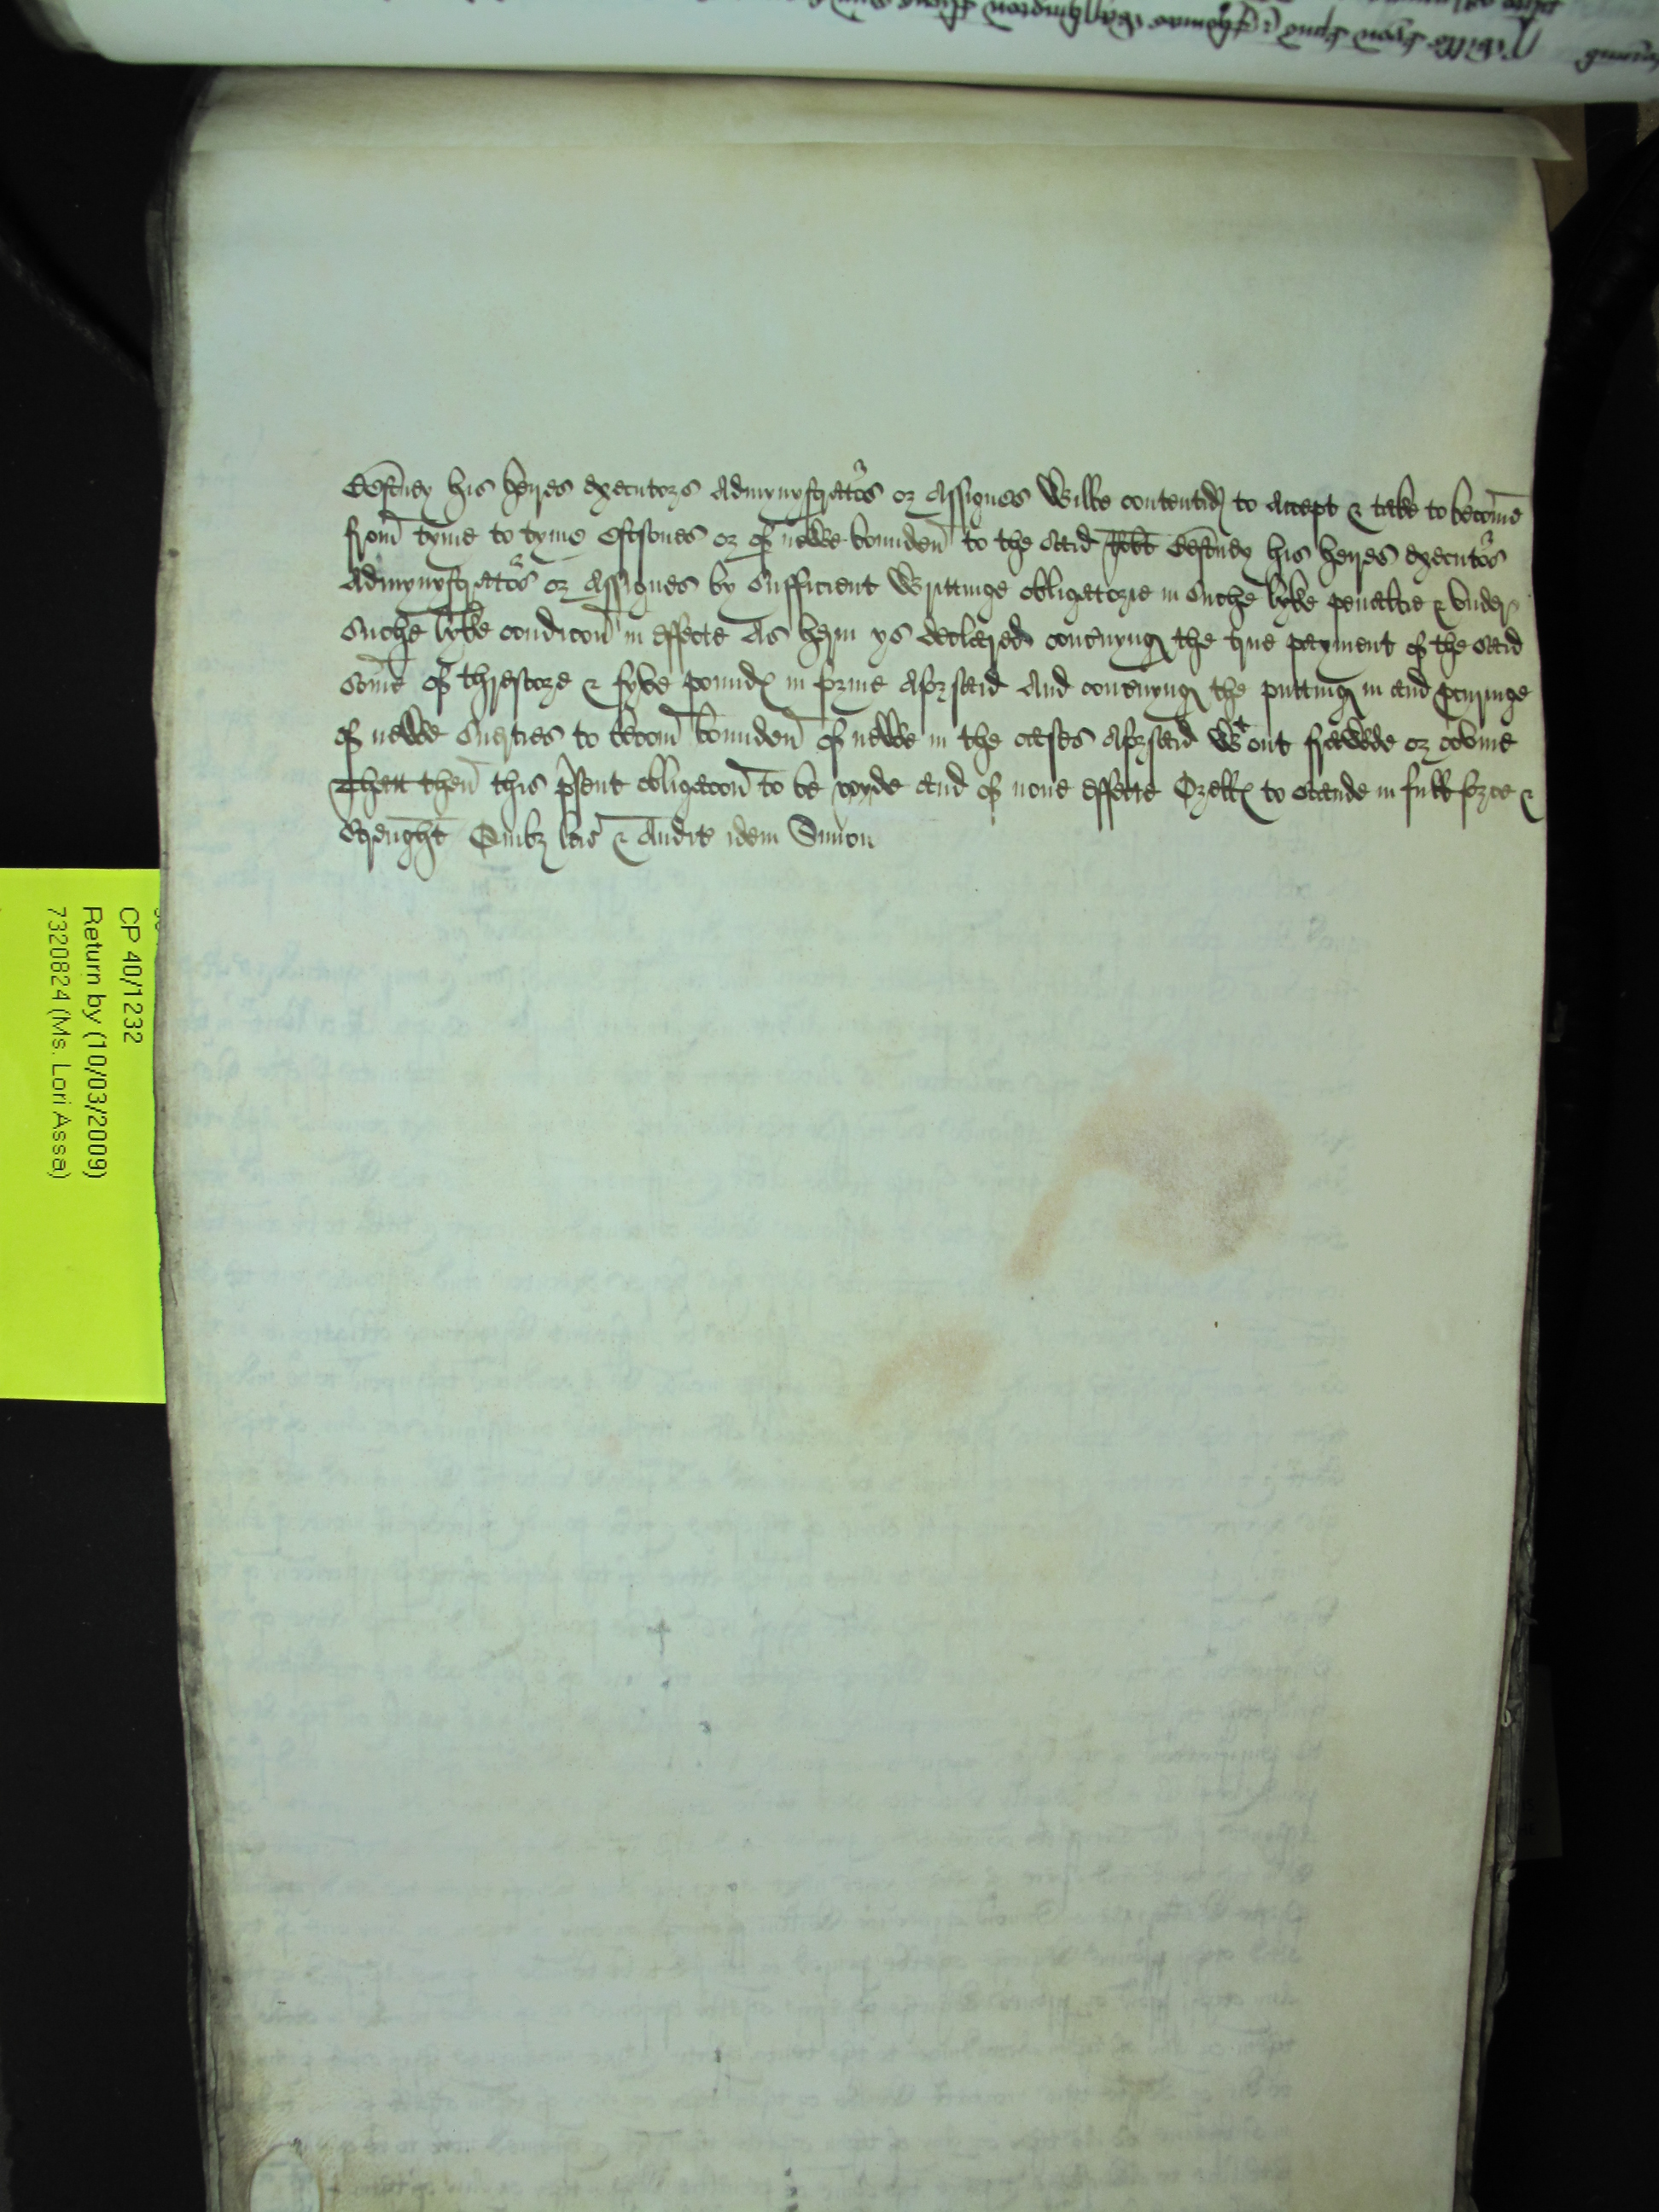 his heyres executors Admynystrators or Assignes Wilbe contentid to Accept & take to become
from tyme to tyme Eftsones or of newe bounden to the said his heyres executors
Admynystrators or Assignes by Sufficient Writtinge obligatorie in Suche lyke penaltie & under
Suche lyke condicon in effecte As herin ys declared concnyng the true payment of the said
Some of threscore & fyve pounds in forme Aforsaid And concnyng the putting in and
of newe Suerties to becom bounden of newe in the cases Aforsaid Wtout frawde or covine
then this psent obligacon to be voyde and of none effecte Orells to stande in full force &
Strenght Quibz lcis & Audit idem Simon
CP 40/1232
Return by (10/03/2009)
7320824 (Ms. Lori Assa)